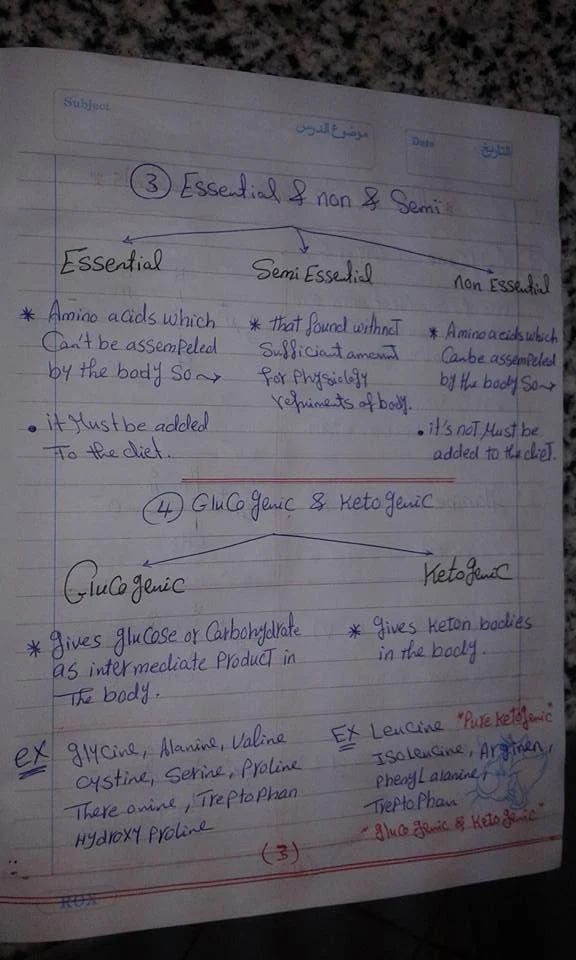 Subject
موضوع الدرس
Date
التاريخ
③ Essential & non & Semi
Essential
* Amino acids which
Can't be assempeled
by the body So ⤳
• it Must be added
To the diet.
Semi Essential
* that found without
Sufficiant amount
for physiology
requiments of body.
non Essential
* Amino acids which
Can be assempeled
by the body So ⤳
• it's noT Must be
added to the dieT.
④ GluCogenic & Ketogenic
Glucogenic
* gives glucose or Carbohydrate
as intermediate ProducT in
The body.
ex glycine, Alanine, Valine
Cystine, Serine, Proline
There onine, TreptoPhan
Hydroxy Proline
Ketogenic
* gives Keton bodies
in the body.
EX Leucine "Pure Ketogenic"
Isoleucine, Arginen,
Phenylalanine,
TreptoPhan
"gluco genic & Keto genic"
(3)
ROX